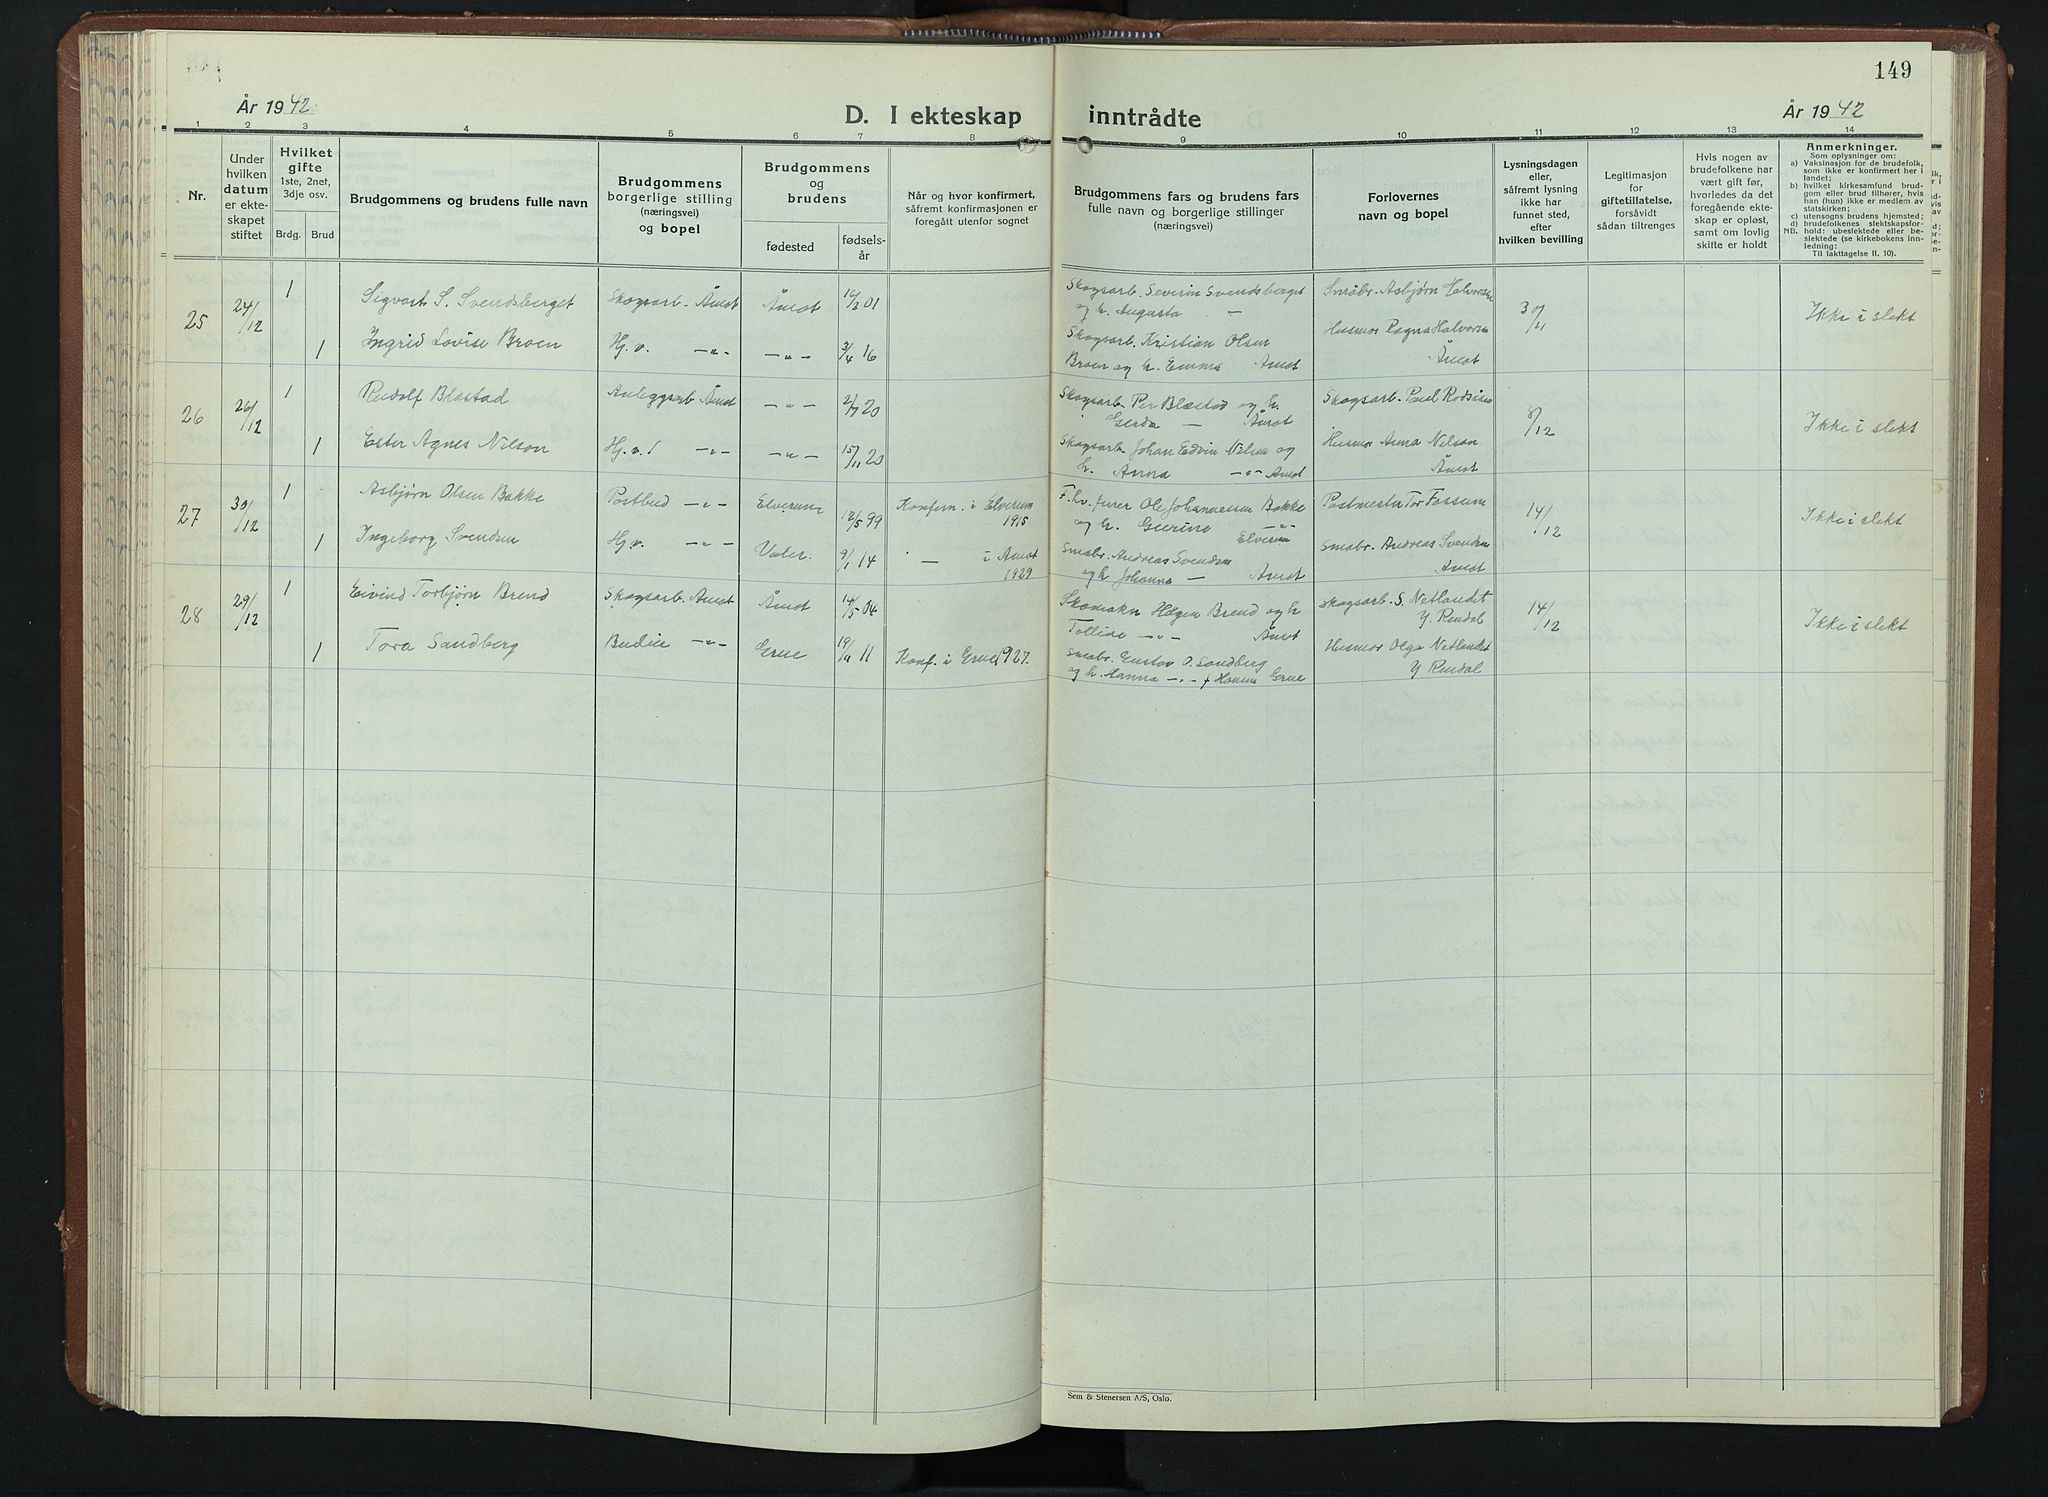 149
År 1942
D. I ekteskap
inntrådte
År 1942
1 2 3 4 5 6 7 8 9 10 11 12 13 14
Nr.
Under
hvilken
datum
er ekte-
skapet
stiftet
Hvilket
gifte
1ste, 2net,
3dje osv.
Brdg. Brud
Brudgommens og brudens fulle navn
Brudgommens
borgerlige stilling
(næringsvei)
og bopel
Brudgommens
og
brudens
fødested
fødsels-
år
Når og hvor konfirmert,
såfremt konfirmasjonen er
foregått utenfor sognet
Brudgommens fars og brudens fars
fulle navn og borgerlige stillinger
(næringsvei)
Forlovernes
navn og bopel
Lysningsdagen
eller,
såfremt lysning
ikke har
funnet sted,
efter
hvilken bevilling
Legitimasjon
for
giftetillatelse,
forsåvidt
sådan tiltrenges
Hvis nogen av
brudefolkene har
vært gift før,
hvorledes da det
foregående ekte-
skap er opløst,
samt om lovlig
skifte er holdt
Anmerkninger.
Som oplysninger om:
a) Vaksinasjon for de brudefolk,
som ikke er konfirmert her i
landet;
b) hvilket kirkesamfund brud-
gom eller brud tilhører, hvis
han (hun) ikke er medlem av
statskirken;
c) utensogns brudens hjemsted;
d) brudefolkenes slektskapsfor-
hold: ubeslektede eller be-
slektede (se kirkebokens inn-
ledning:
NB. Til iakttagelse II. 10).
25 24/12 1 Sigvart S. Svendsberget Skogsarb. Åmot Åmot 16/2 01 Skogsarb. Severin Svendsberget Småbr. Asbjørn Halvorsen 30/11 Ikke i slekt
og h. Augusta —
1 Ingrid Lovise Broen Hj.v. -"- -"- 3/4 16 Skogsarb. Kristian Olsen Husmor Ragna Halvorsen
Broen og h. Emma Åmot Åmot
26 26/12 1 Rudolf Blæstad Anleggsarb Åmot -"- 2/7 20 Skogsarb. Per Blæstad og h. Skogsarb. Paul 8/12 Ikke i slekt
Gerda — Åmot
1 Ester Agnes Nilson Hj.v. -"- -"- 15/11 20 Skogsarb. Johan Edvin Nilsen og Husmor Anna Nilson
h. Anna -"- Åmot Åmot
27 30/12 1 Asbjørn Olsen Bakke Postbud -"- Elverum 12/5 99 Konferm. i Elverum F.hv. furer Ole Johannessen Bakke Postmester Tor Fossum 14/12 Ikke i slekt
1915 og h. Gurine -"-
Elverum
1 Ingeborg Svendsen Hj.v. -"- Våler. 9/1 14 — i Åmot Småbr. Andreas Svendsen Småbr. Andreas Svendsen
1929 og h Johanna — Åmot Åmot
28 29/12 1 Eivind Torbjørn Brend Skogsarb. Åmot Åmot 14/5 04 Skomakr Hågen Brend og h Skogsarb. S. Netlandet 14/12 Ikke i slekt
Tolline -"- Åmot Y. Rendal
1 Tora Sandberg Budeie -"- Grue 19/4 11 Konf. i Grue 1927. Småbr. Gustav O. Sandberg Husmor Olga Netlandet
og h. Hanna -"- Grue Y Rendal
Sem & Stenersen A/S, Oslo.